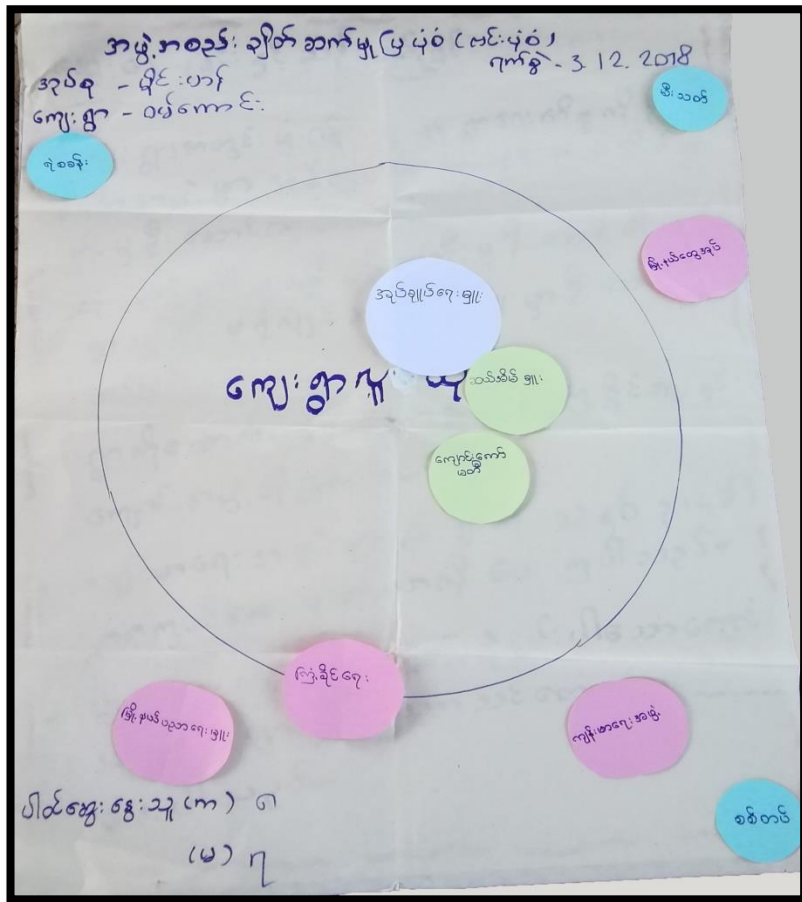 အဖွဲ့အစည်း ချိတ်ဆက်မှုပြပုံစံ (ဗင်းပုံစံ)
ရက်စွဲ - 3.12.2018
အုပ်စု - မိုင်းဟန်
ကျေးရွာ - ဝမ်ကောင်း
မီးသတ်
ရဲစခန်း
မြို့နယ်ထွေအုပ်
အုပ်ချုပ်ရေးမှူး
ကျေးရွာလူ
ဆယ်အိမ်မှူး
ကျောင်းကော်
မတီ
ကြံ့ခိုင်ရေး
မြို့နယ်ပညာရေးမှူး
ကျန်းမာရေးအဖွဲ့
စစ်တပ်
ပါဝင်ဆွေးနွေးသူ (ကာ) ၈
(မ) ၇